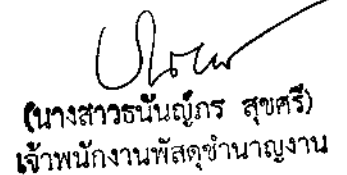 (นางสาวธนันญ์ภร สุขศรี)
เจ้าพนักงานพัสดุชำนาญงาน